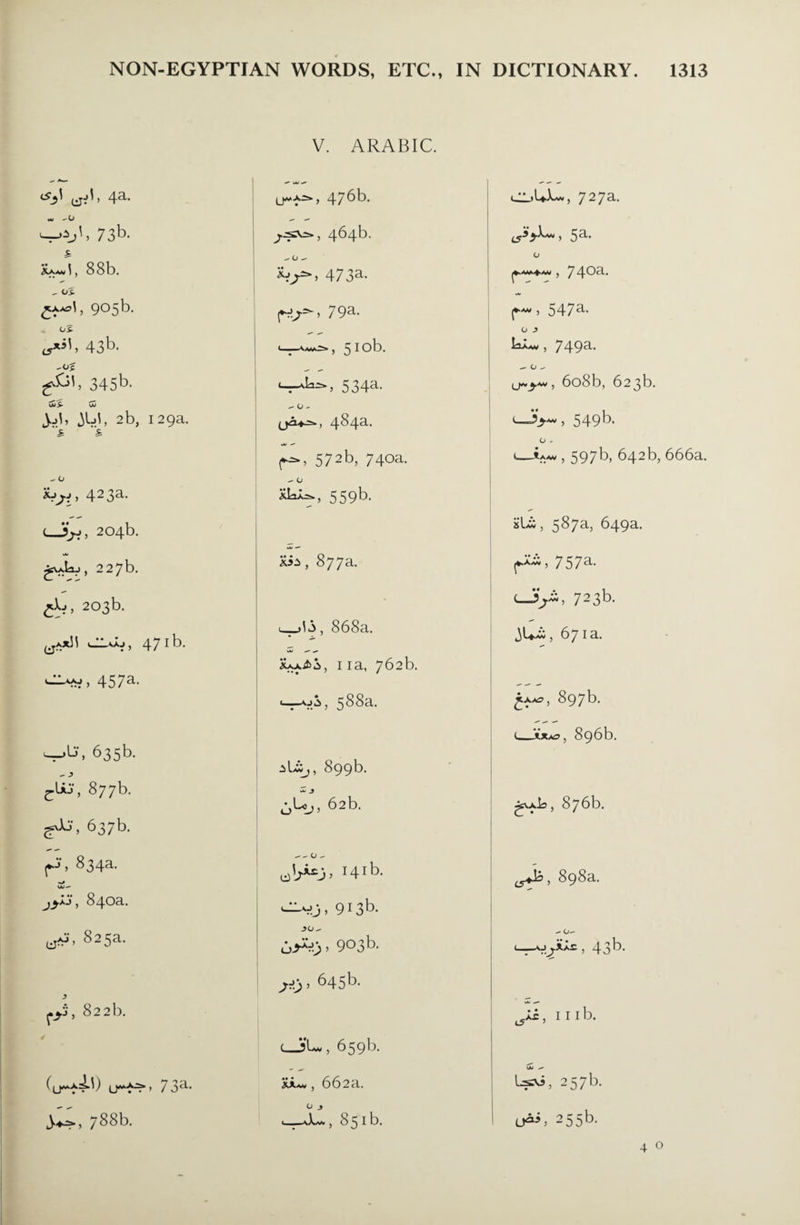 NON-EGYPTIAN WORDS, ETC., IN DICTIONARY. 1313
V. ARABIC.
ابن آوى, 4a.
اردبّ, 73b.
88b.
اصبع, 905b.
افعى, 43b.
345b.
ايّل, ايّال, 2b, 129a.
423a.
برق, 204b.
بطّيخ, 227b.
بلح, 203b.
العين, 471b.
بيت, 457a.
تاب, 635b.
تفاح, 877b.
تلج, 637b.
تم, 834a.
تنّور, 840a.
تين, 825a.
ثوم, 822b.
جبس (الجبس), 73a.
جمل, 788b.
حبس, 476b.
حجر, 464b.
حربة, 473a.
حريم, 79a.
حسب, 510b.
حطب, 534a.
حمض, 484a.
حم, 572b, 740a.
حنطة, 559b.
877a.
868a.
ذهبيّة, 11a, 762b.
ذيب, 588a.
رشاد, 899b.
رمّان, 62b.
زعفران, 141b.
زيت, 913b.
زيتون, 903b.
زير, 645b.
ساق, 659b.
سنة, 662a.
سلب, 851b.
727a.
سلوى, 5a.
سمسم, 740a.
سم, 547a.
سنط, 749a.
سوس, 608b, 623b.
سوق, 549b.
سيف, 597b, 642b, 666a.
شاة, 587a, 649a.
757a.
شرق, 723b.
شمال, 671a.
صبغ, 897b.
896b.
طبيخ, 876b.
طمى, 898a.
عقرب, 43b.
111b.
257b.
255b.
4 O